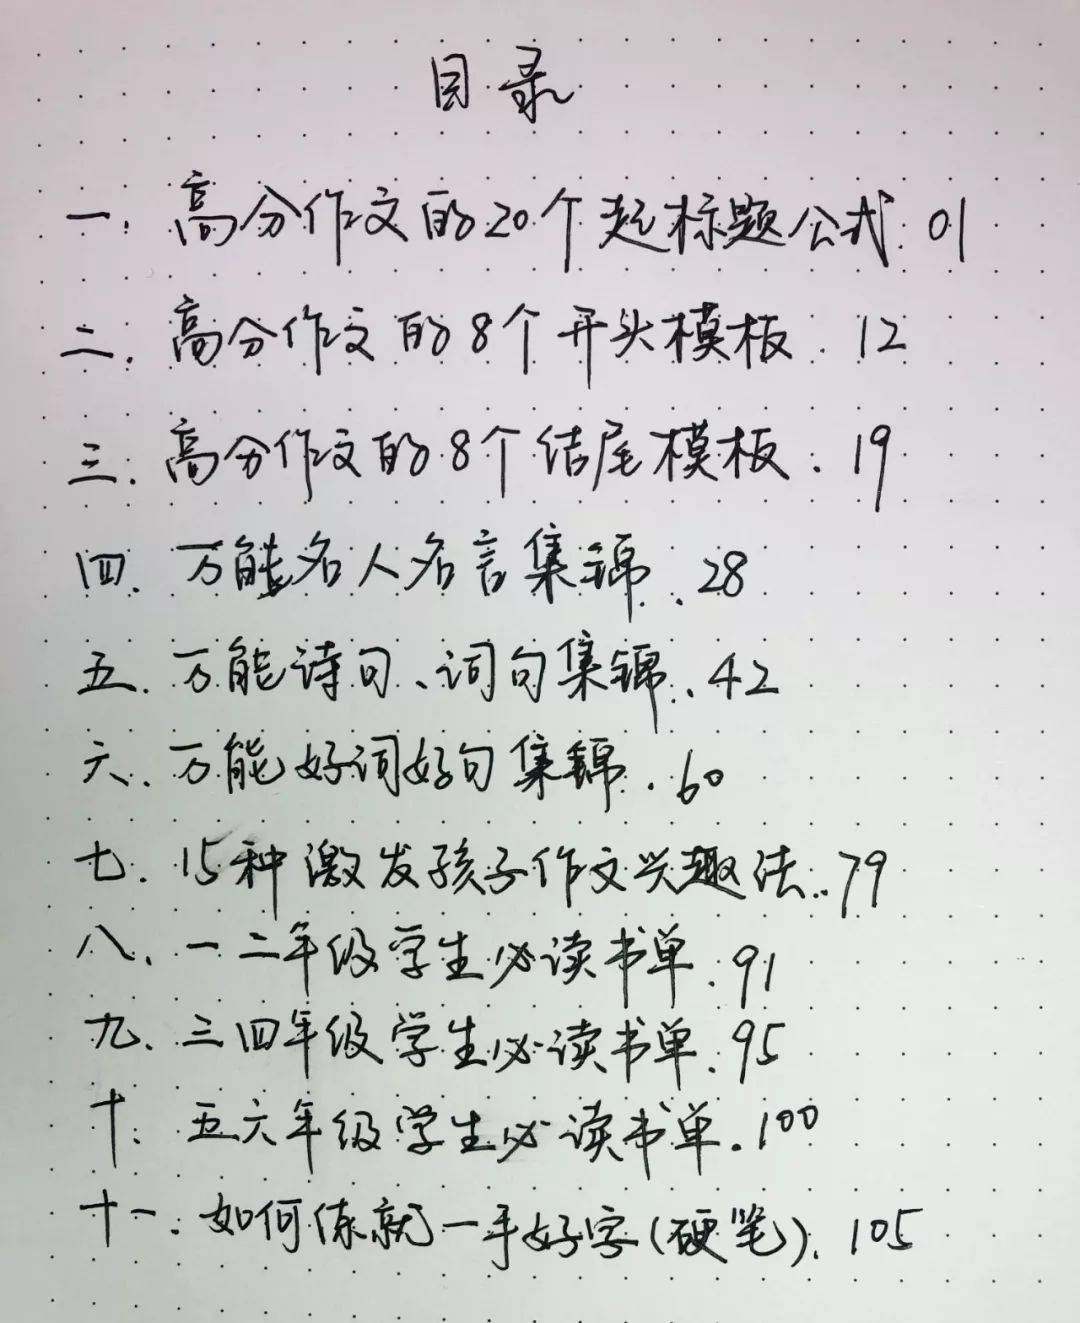 目录
一. 高分作文的20个起标题公式. 01
二. 高分作文的8个开头模板. 12
三. 高分作文的8个结尾模板. 19
四. 万能名人名言集锦. 28
五. 万能诗句、词句集锦. 42
六、万能好词好句集锦. 60
七. 15种激发孩子作文兴趣法. 79
八、一二年级学生必读书单. 91
九、三四年级学生必读书单. 95
十、五六年级学生必读书单. 100
十一、如何练就一手好字(硬笔). 105